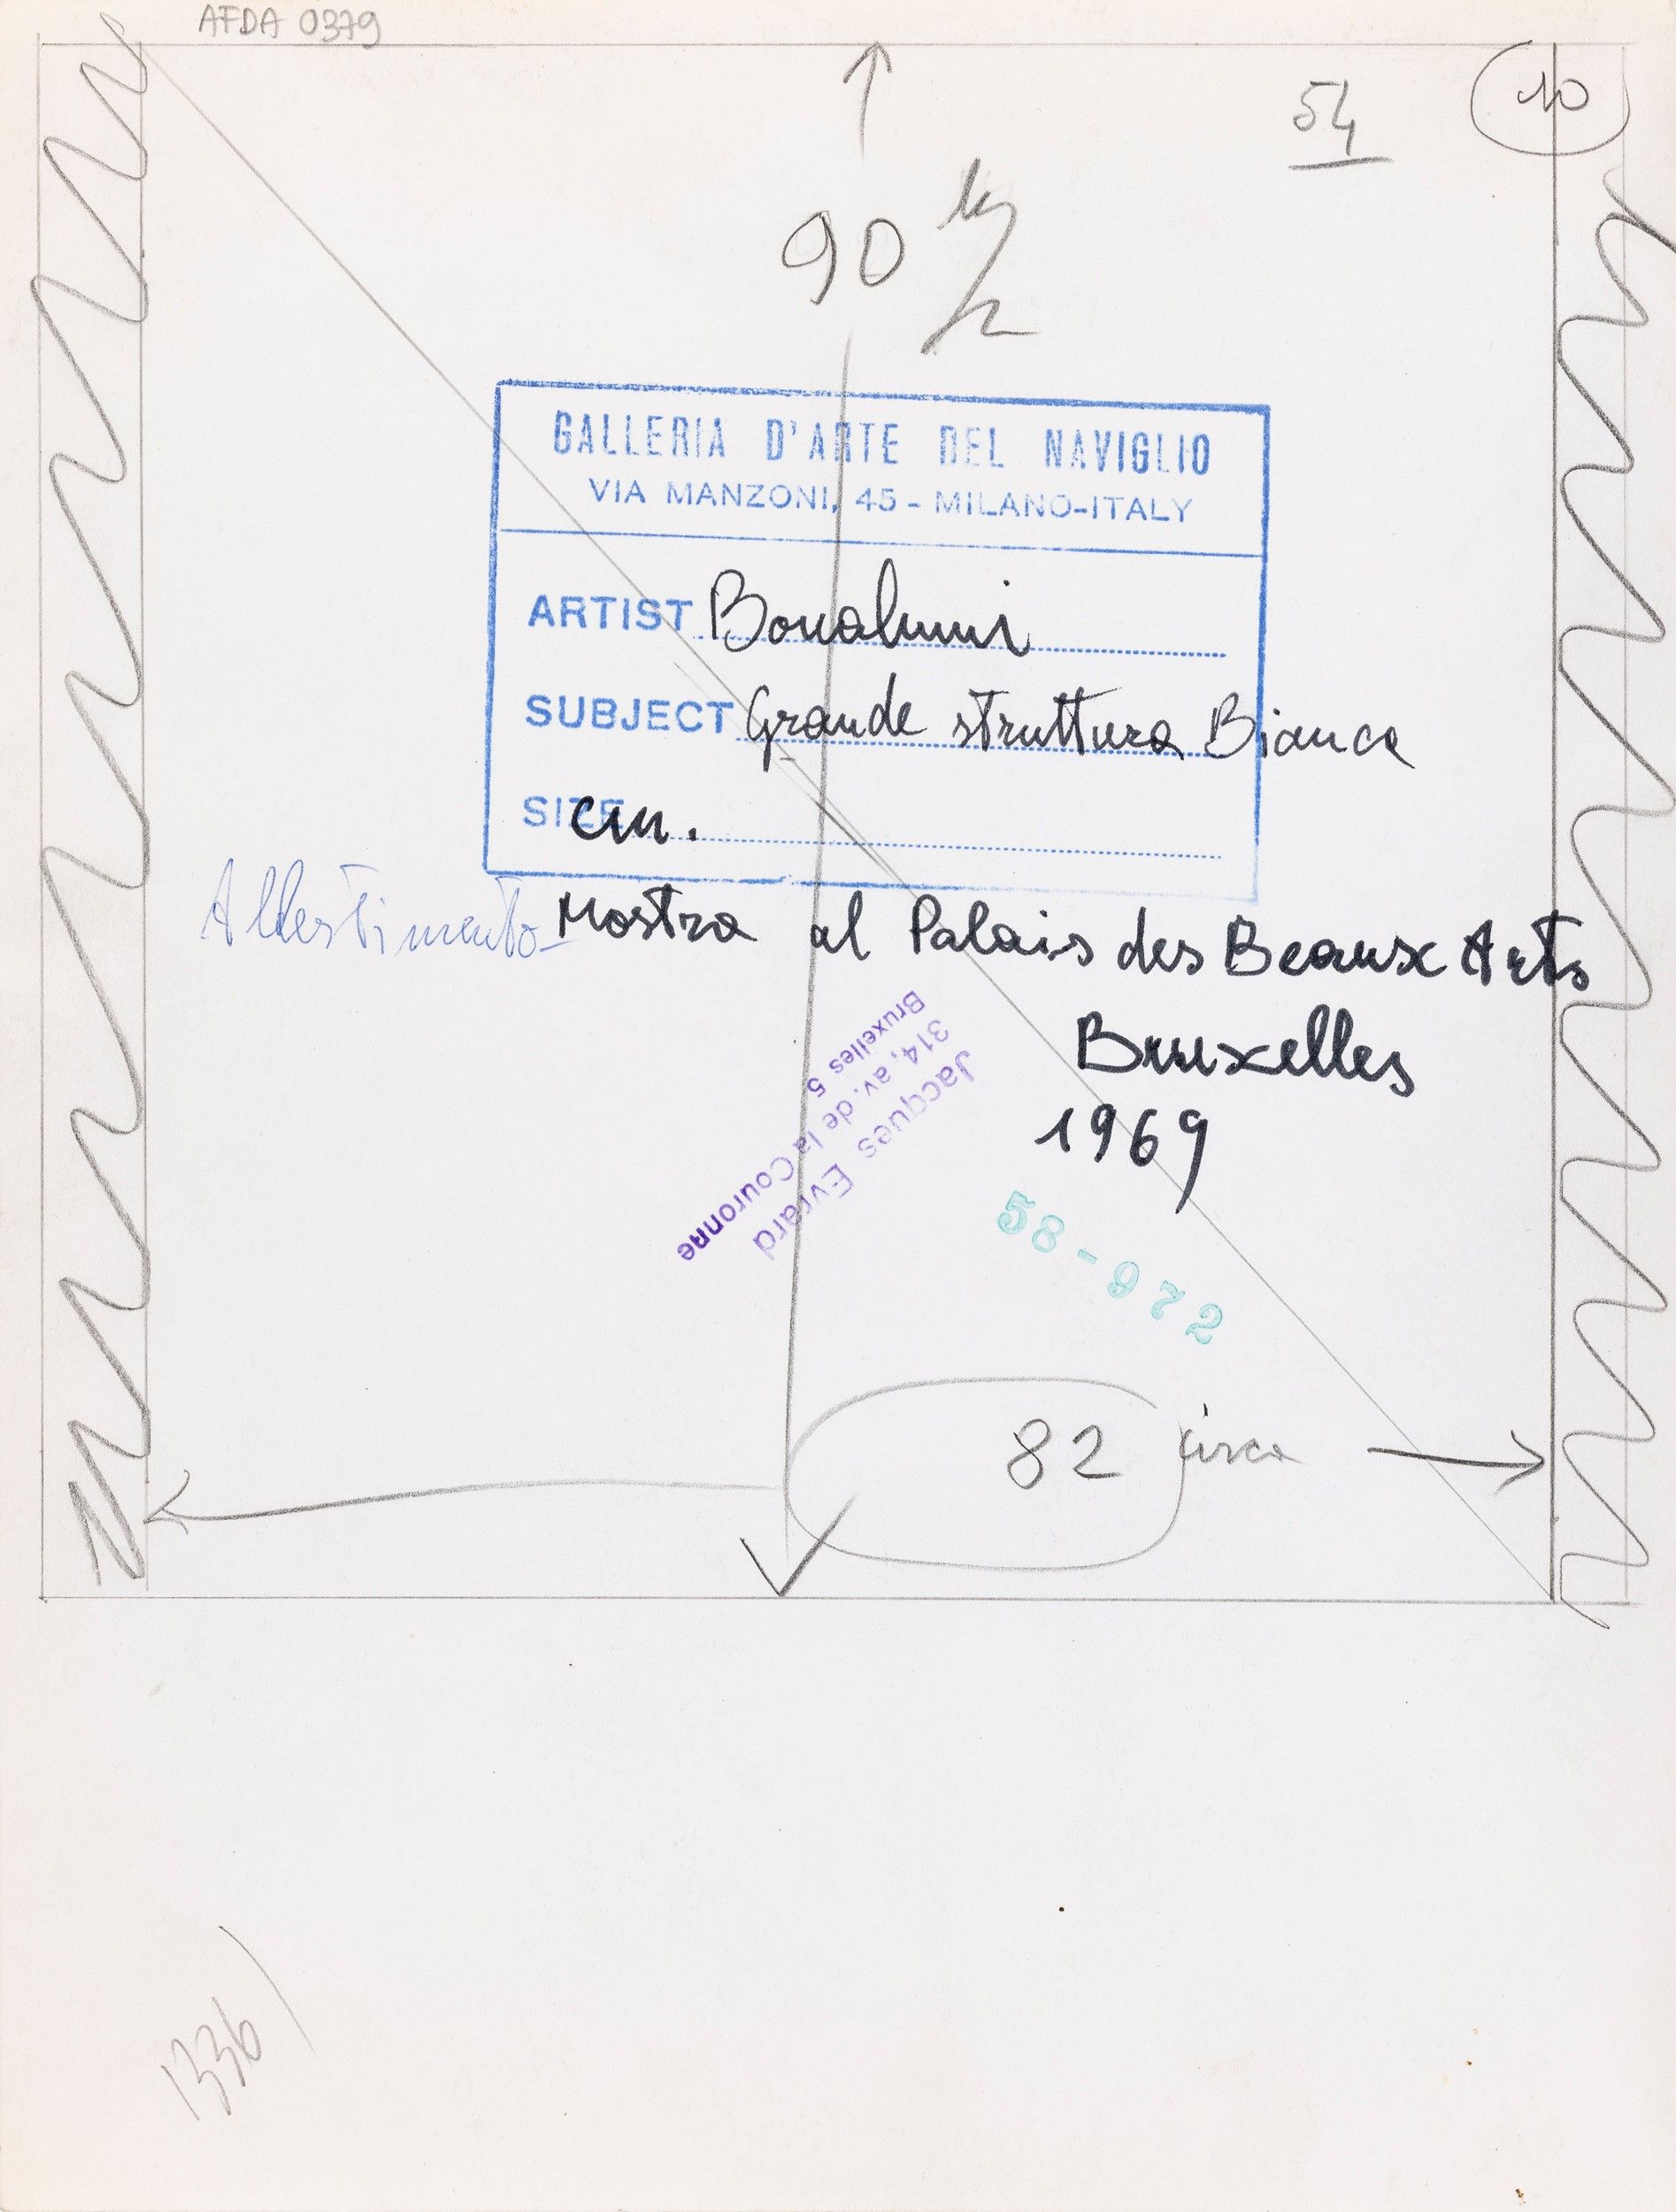 AFDA 0379
10
54
90
GALLERIA D'ARTE DEL NAVIGLIO
VIA MANZONI, 45 - MILANO-ITALY
ARTIST Bonalumi
SUBJECT Grande struttura Bianca
SIZE cm.
Allestimento - Mostra al Palais des Beaux Arts
Bruxelles
1969
Jacques Evrard
314, av. de la Couronne
Bruxelles 5
58-972
82 circa
1336